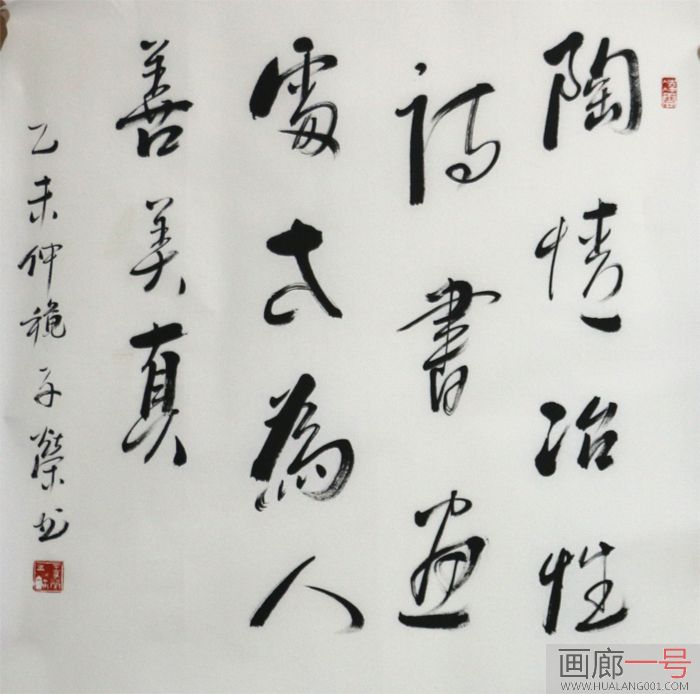 陶情冶性
诗書画
處世為人
善美真
乙未仲穐子榮书
画廊一号
WWW.HUALANG001.COM